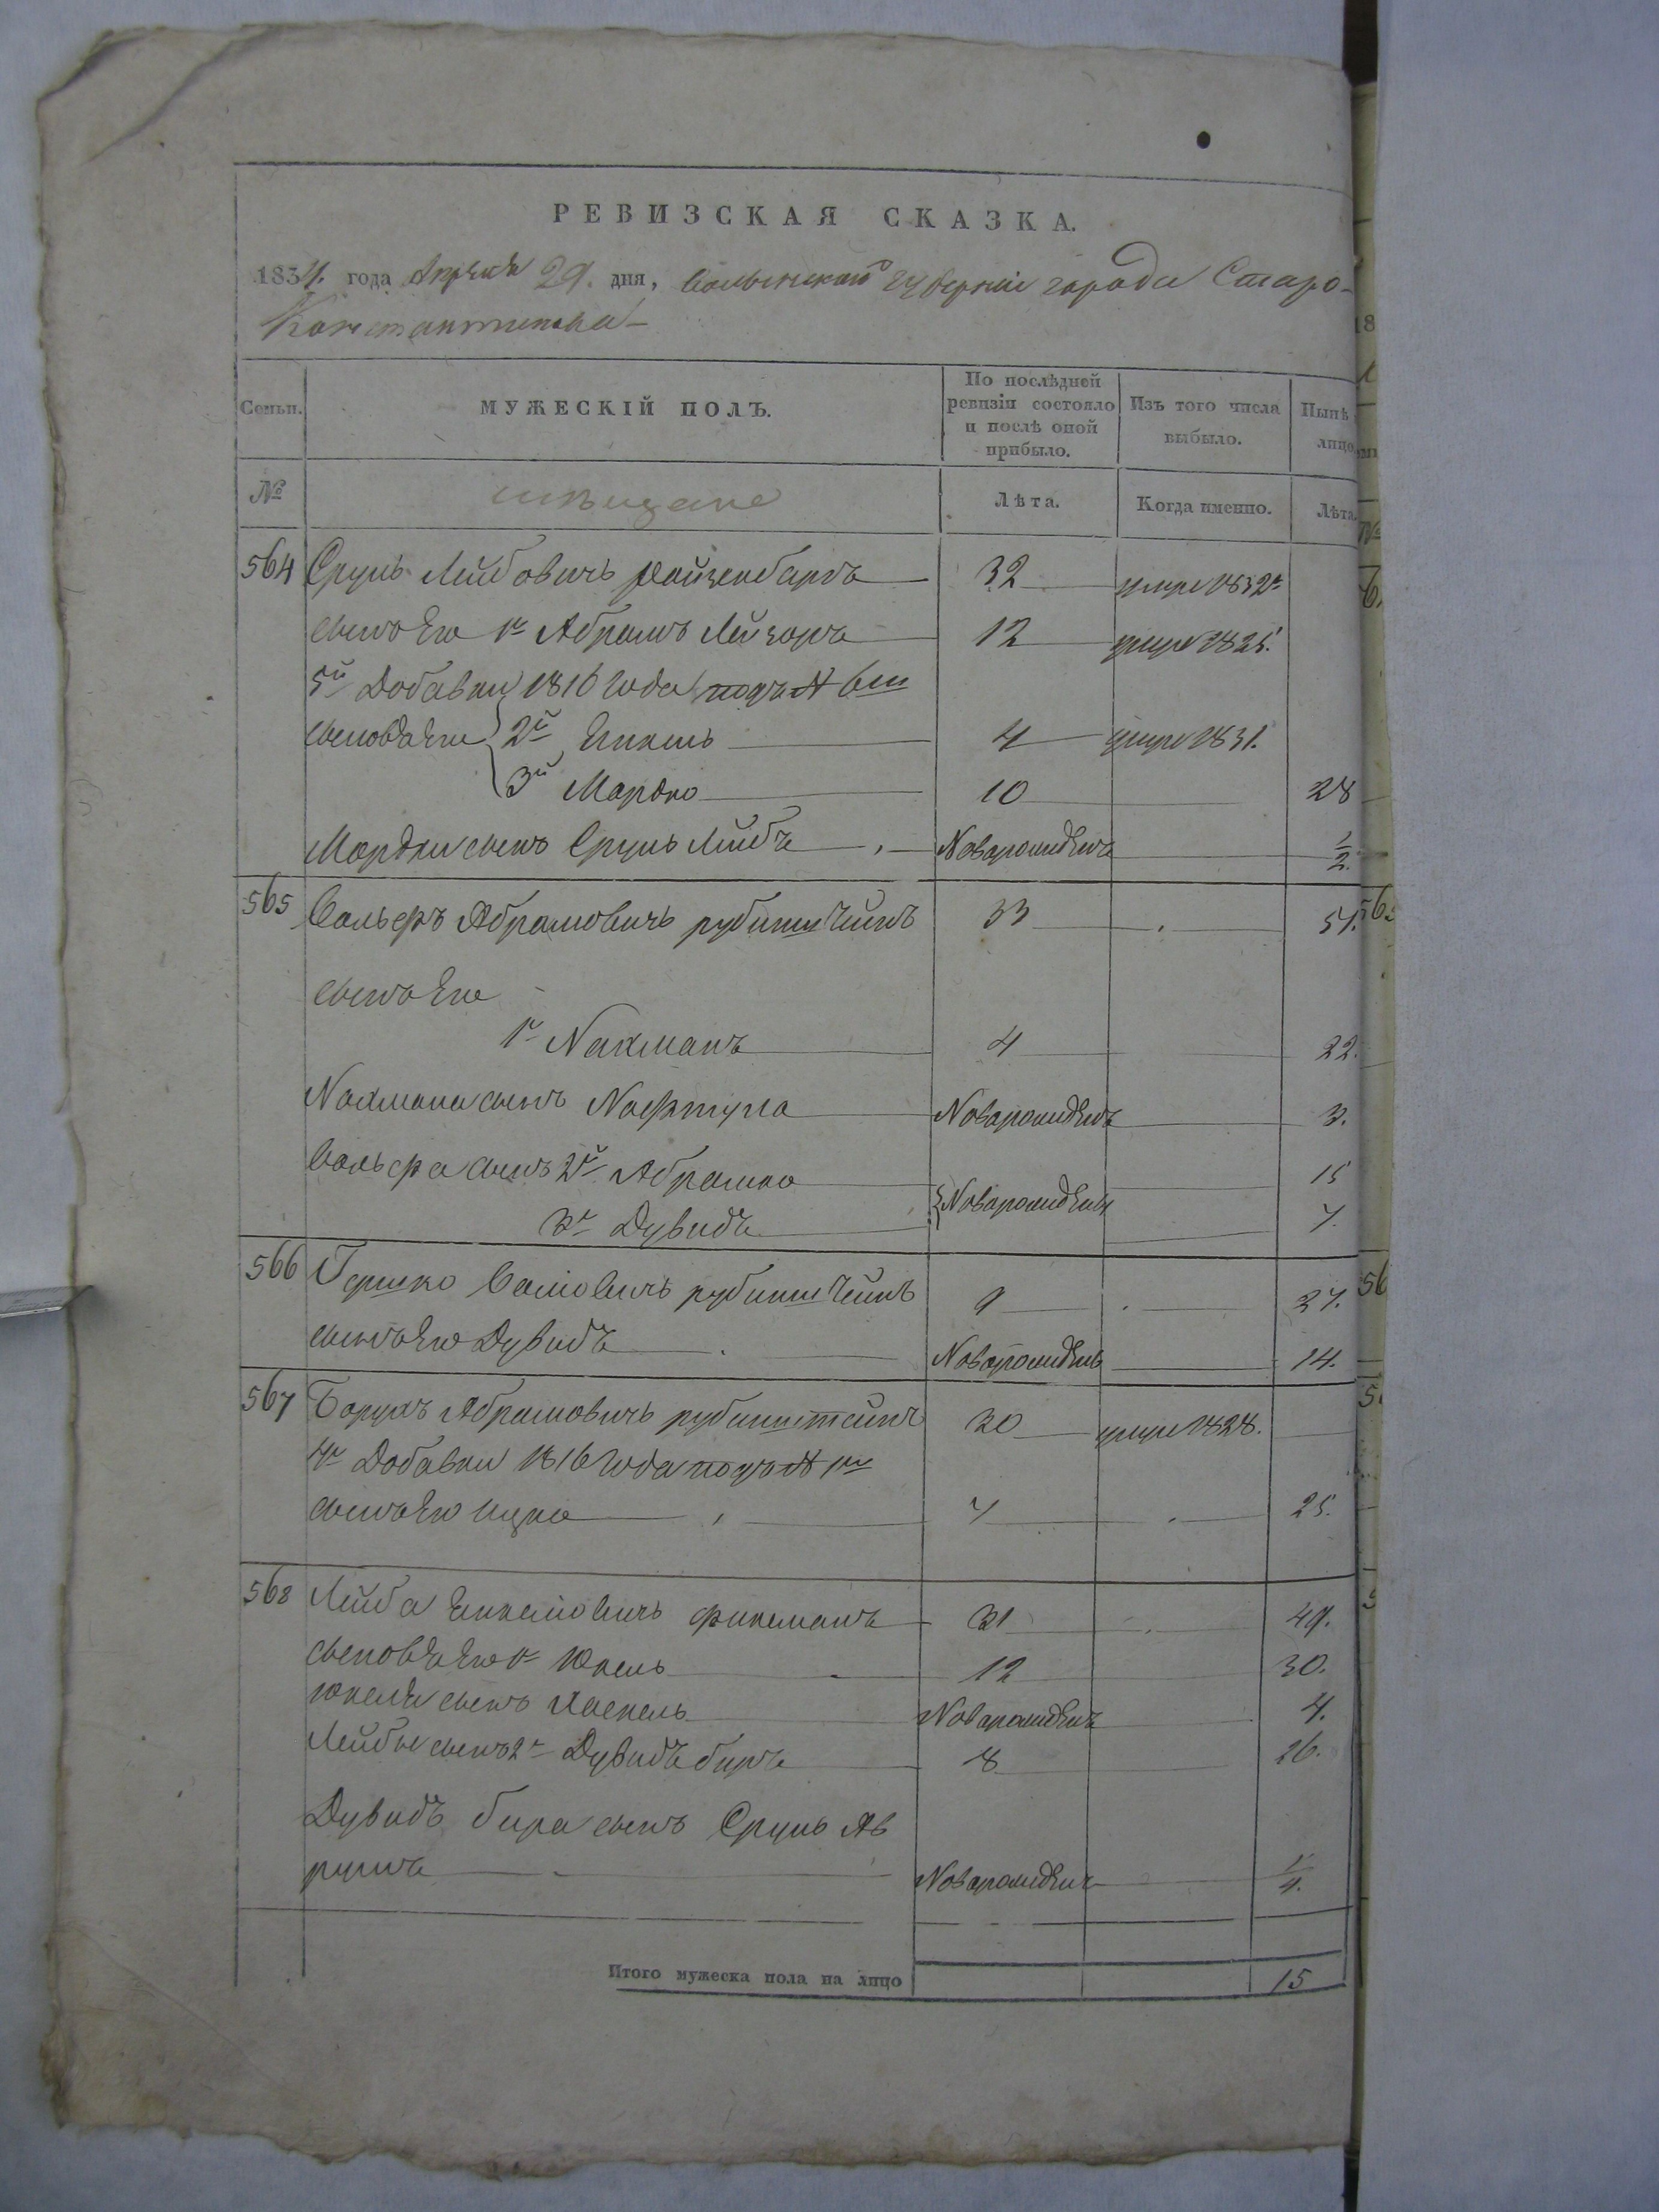 РЕВИЗСКАЯ СКАЗКА.
1834. года Апреля 29. дня, Волынской губернии города Старо-
Константинова
Семьи. МУЖЕСКІЙ ПОЛЪ. По послѣдней ревизіи состояло и послѣ оной прибыло. Изъ того числа выбыло. Нынѣ лицо
№ мѣщане Лѣта. Когда именно. Лѣта
564 Сруль Лейбовичь 32 умре 1832г
сынъ Его 1й Абрамъ Лейзоръ 12 умре 1825.
5й Добавки 1816 Года подъ № 6м
сыновья Его 2й Янкель 4 умре 1831.
3й Мордко 10 28
Мордки сынъ Сруль Лейбъ Новорожденъ 1/2
565 Вольфъ Абрамовичь рубинштейнъ 33 51.
сынъ Его
1й Нахманъ 4 22.
Нахмана сынъ Нафтула Новорожденъ 3.
Вольфа сынъ 2й Абрамко 15
3й Дувидъ Новорожденъ 7.
566 Гершко рубинштейнъ 9 27.
сынъ Его Дувидъ Новорожденъ 14.
567 Борухъ Абрамовичь рубинштейнъ 30 умре 1828.
4й Добавки 1816 Года подъ №
сынъ Его Ицко 7 25.
568 Лейба Янкелiовичь фиксманъ 31 49.
сыновья Его 1й Юкель 12 30.
Юкеля сынъ Хаскель Новорожденъ 4.
Лейбы сынъ 2й Дувидъ биръ 8 26.
Дувидъ бира сынъ Сруль Ав
румъ Новорожденъ 1/4.
Итого мужеска пола на лицо 15